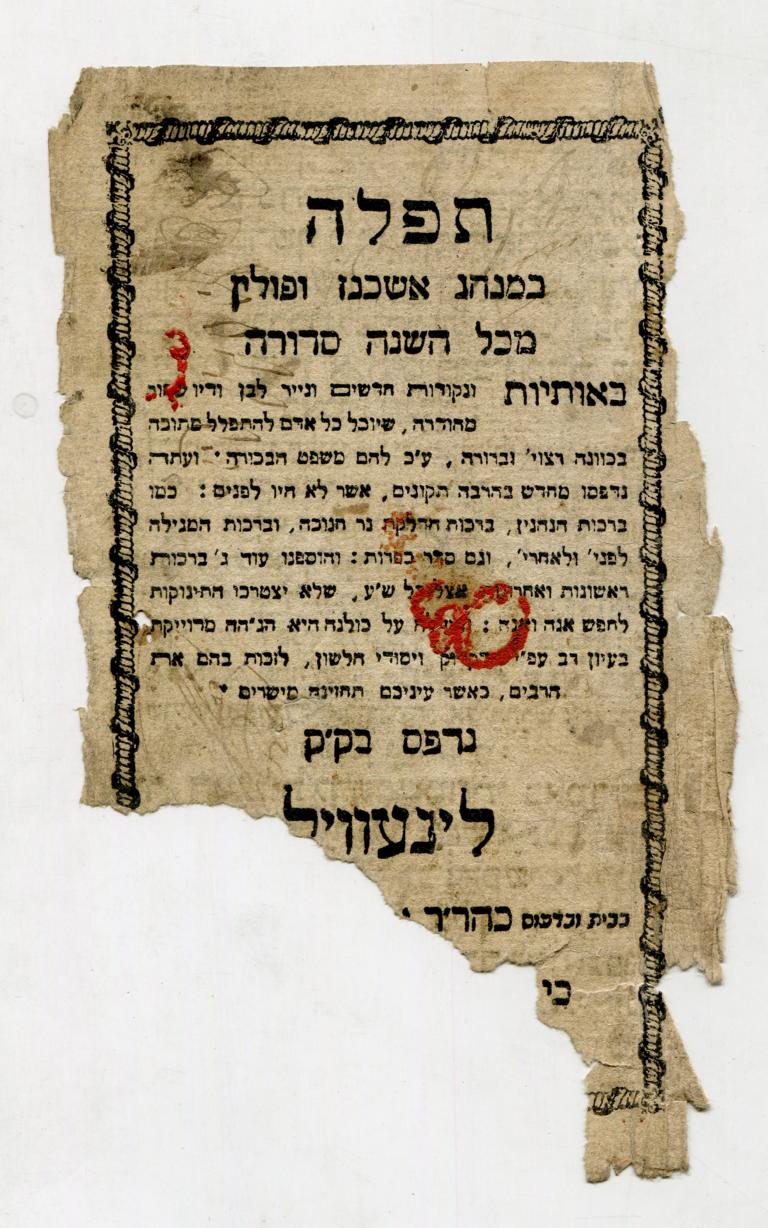 תפלה
במנהג אשכנז ופולין
מכל השנה סדורה
באותיות ונקודות חדשים ונייר לבן ודיו
מהודרה, שיוכל כל אדם להתפלל מתוכה
בכוונה רצוי' וברורה, ע"כ להם משפט הבכורה· ועתה
נדפסו מחדש בהרבה תקונים, אשר לא היו לפנים: כמו
ברכות הנהנין, ברכות הדלקת נר חנוכה, וברכות המגילה
לפני' ולאחרי', וגם סדר כפרות: והוספנו עוד ג' ברכות
ראשונות ואחרונות אצל כל ש"ע, שלא יצטרכו התינוקות
לחפש אנה ואנה: על כולנה היא הגהה מדוייקת
בעיון רב עפ"י ויסודי הלשון, לזכות בהם את
הרבים, כאשר עיניכם תחזינה מישרים·
נדפס בק"ק
לינעוויל
בבית ובדפוס כהר"ר
כי